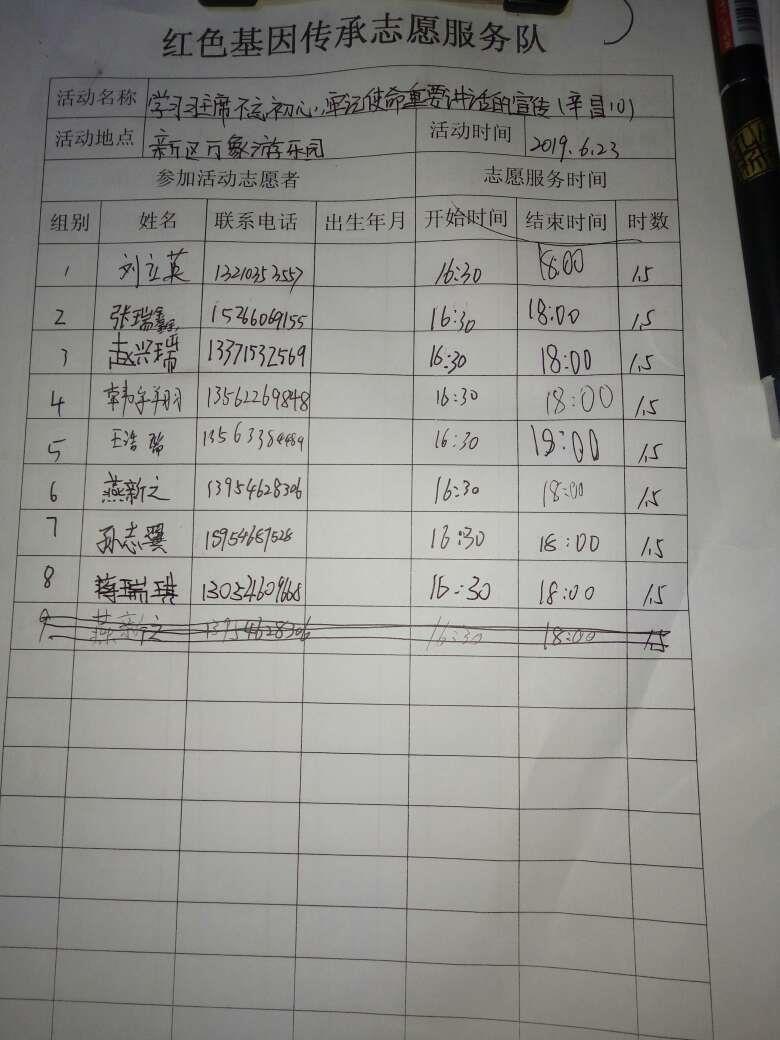 红色基因传承志愿服务队
活动名称 学习习主席不忘初心，牢记使命重要讲话的宣传(辛昌10)
活动地点 新区万象游乐园 活动时间 2019.6.23
参加活动志愿者 志愿服务时间
组别 姓名 联系电话 出生年月 开始时间 结束时间 时数
1 刘立英 13210353557 16:30 18:00 1.5
2 张瑞鑫 15266069155 16:30 18:00 1.5
3 赵兴瑞 13371532569 16:30 18:00 1.5
4 韩宇翔 13562269848 16:30 18:00 1.5
5 王浩 16:30 18:00 1.5
6 燕新之 13954628306 16:30 18:00 1.5
7 孙志翼 15954687528 16:30 18:00 1.5
8 蒋瑞琪 13054609668 16:30 18:00 1.5
9 燕新之 13954628306 16:30 18:00 1.5